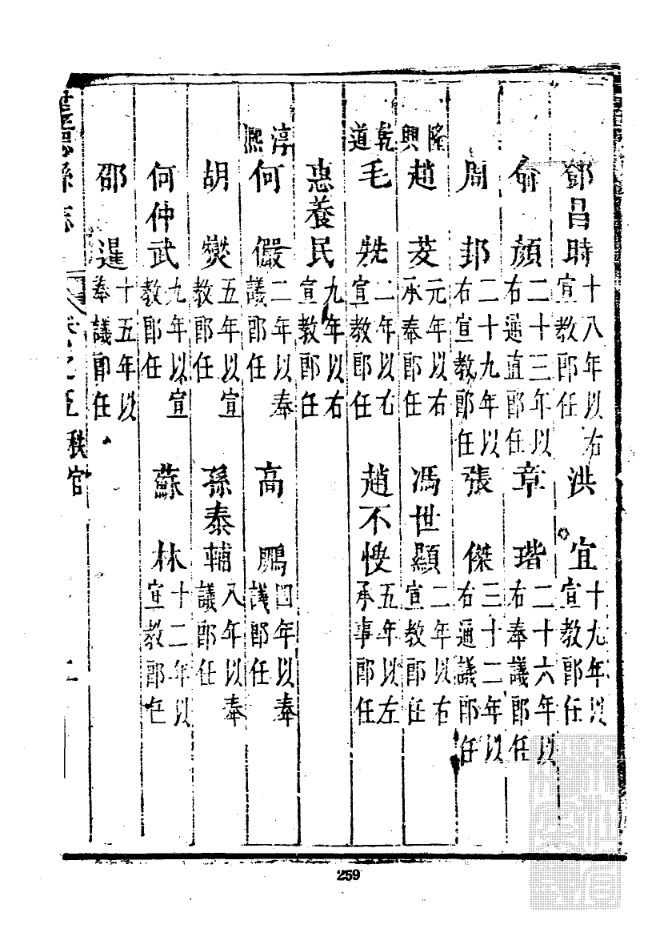 鄧昌時 十八年以右宣教郎任 洪宜 十九年以宣教郎任
俞顏 二十三年以右通直郎任 章瑎 二十六年以右奉議郎任
周邦 二十九年以右宣教郎任 張傑 三十二年以右通議郎任
隆興
趙芨 元年以右承奉郎任 馮世顯 二年以右宣教郎任
乾道
毛兟 二年以右宣教郎任 趙不㥞 五年以左承事郎任
惠養民 九年以右宣教郎任
淳熙
何儼 二年以奉議郎任 高鵬 四年以奉議郎任
胡爕 五年以宣教郎任 孫泰輔 八年以奉議郎任
何仲武 九年以宣教郎任 蘇林 十二年以宣教郎任
邵暹 十五年以奉議郎任
縣志 卷之五 秩官
259